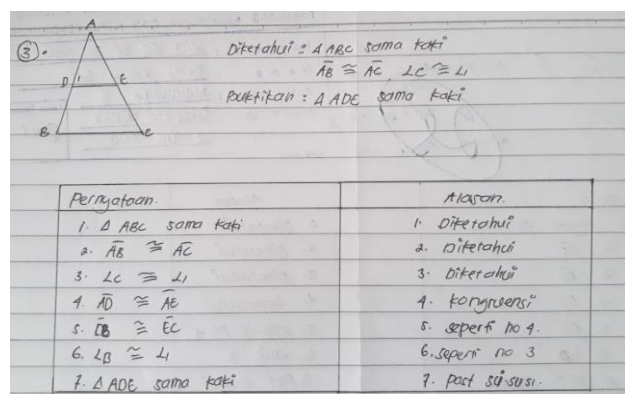 A
③. Diketahui : Δ ABC sama kaki
A̅B̅ ≅ A̅C̅, ∠C ≅ ∠1
Buktikan : Δ ADE sama kaki
D 1 E
B C
Pernyataan. Alasan.
1. Δ ABC sama kaki 1. Diketahui
2. A̅B̅ ≅ A̅C̅ 2. Diketahui
3. ∠C ≅ ∠1 3. Diketahui
4. A̅D̅ ≅ A̅E̅ 4. kongruensi
5. D̅B̅ ≅ E̅C̅ 5. seperti no 4.
6. ∠B ≅ ∠1 6. seperti no 3
7. Δ ADE sama kaki 7. Post si·su·si.